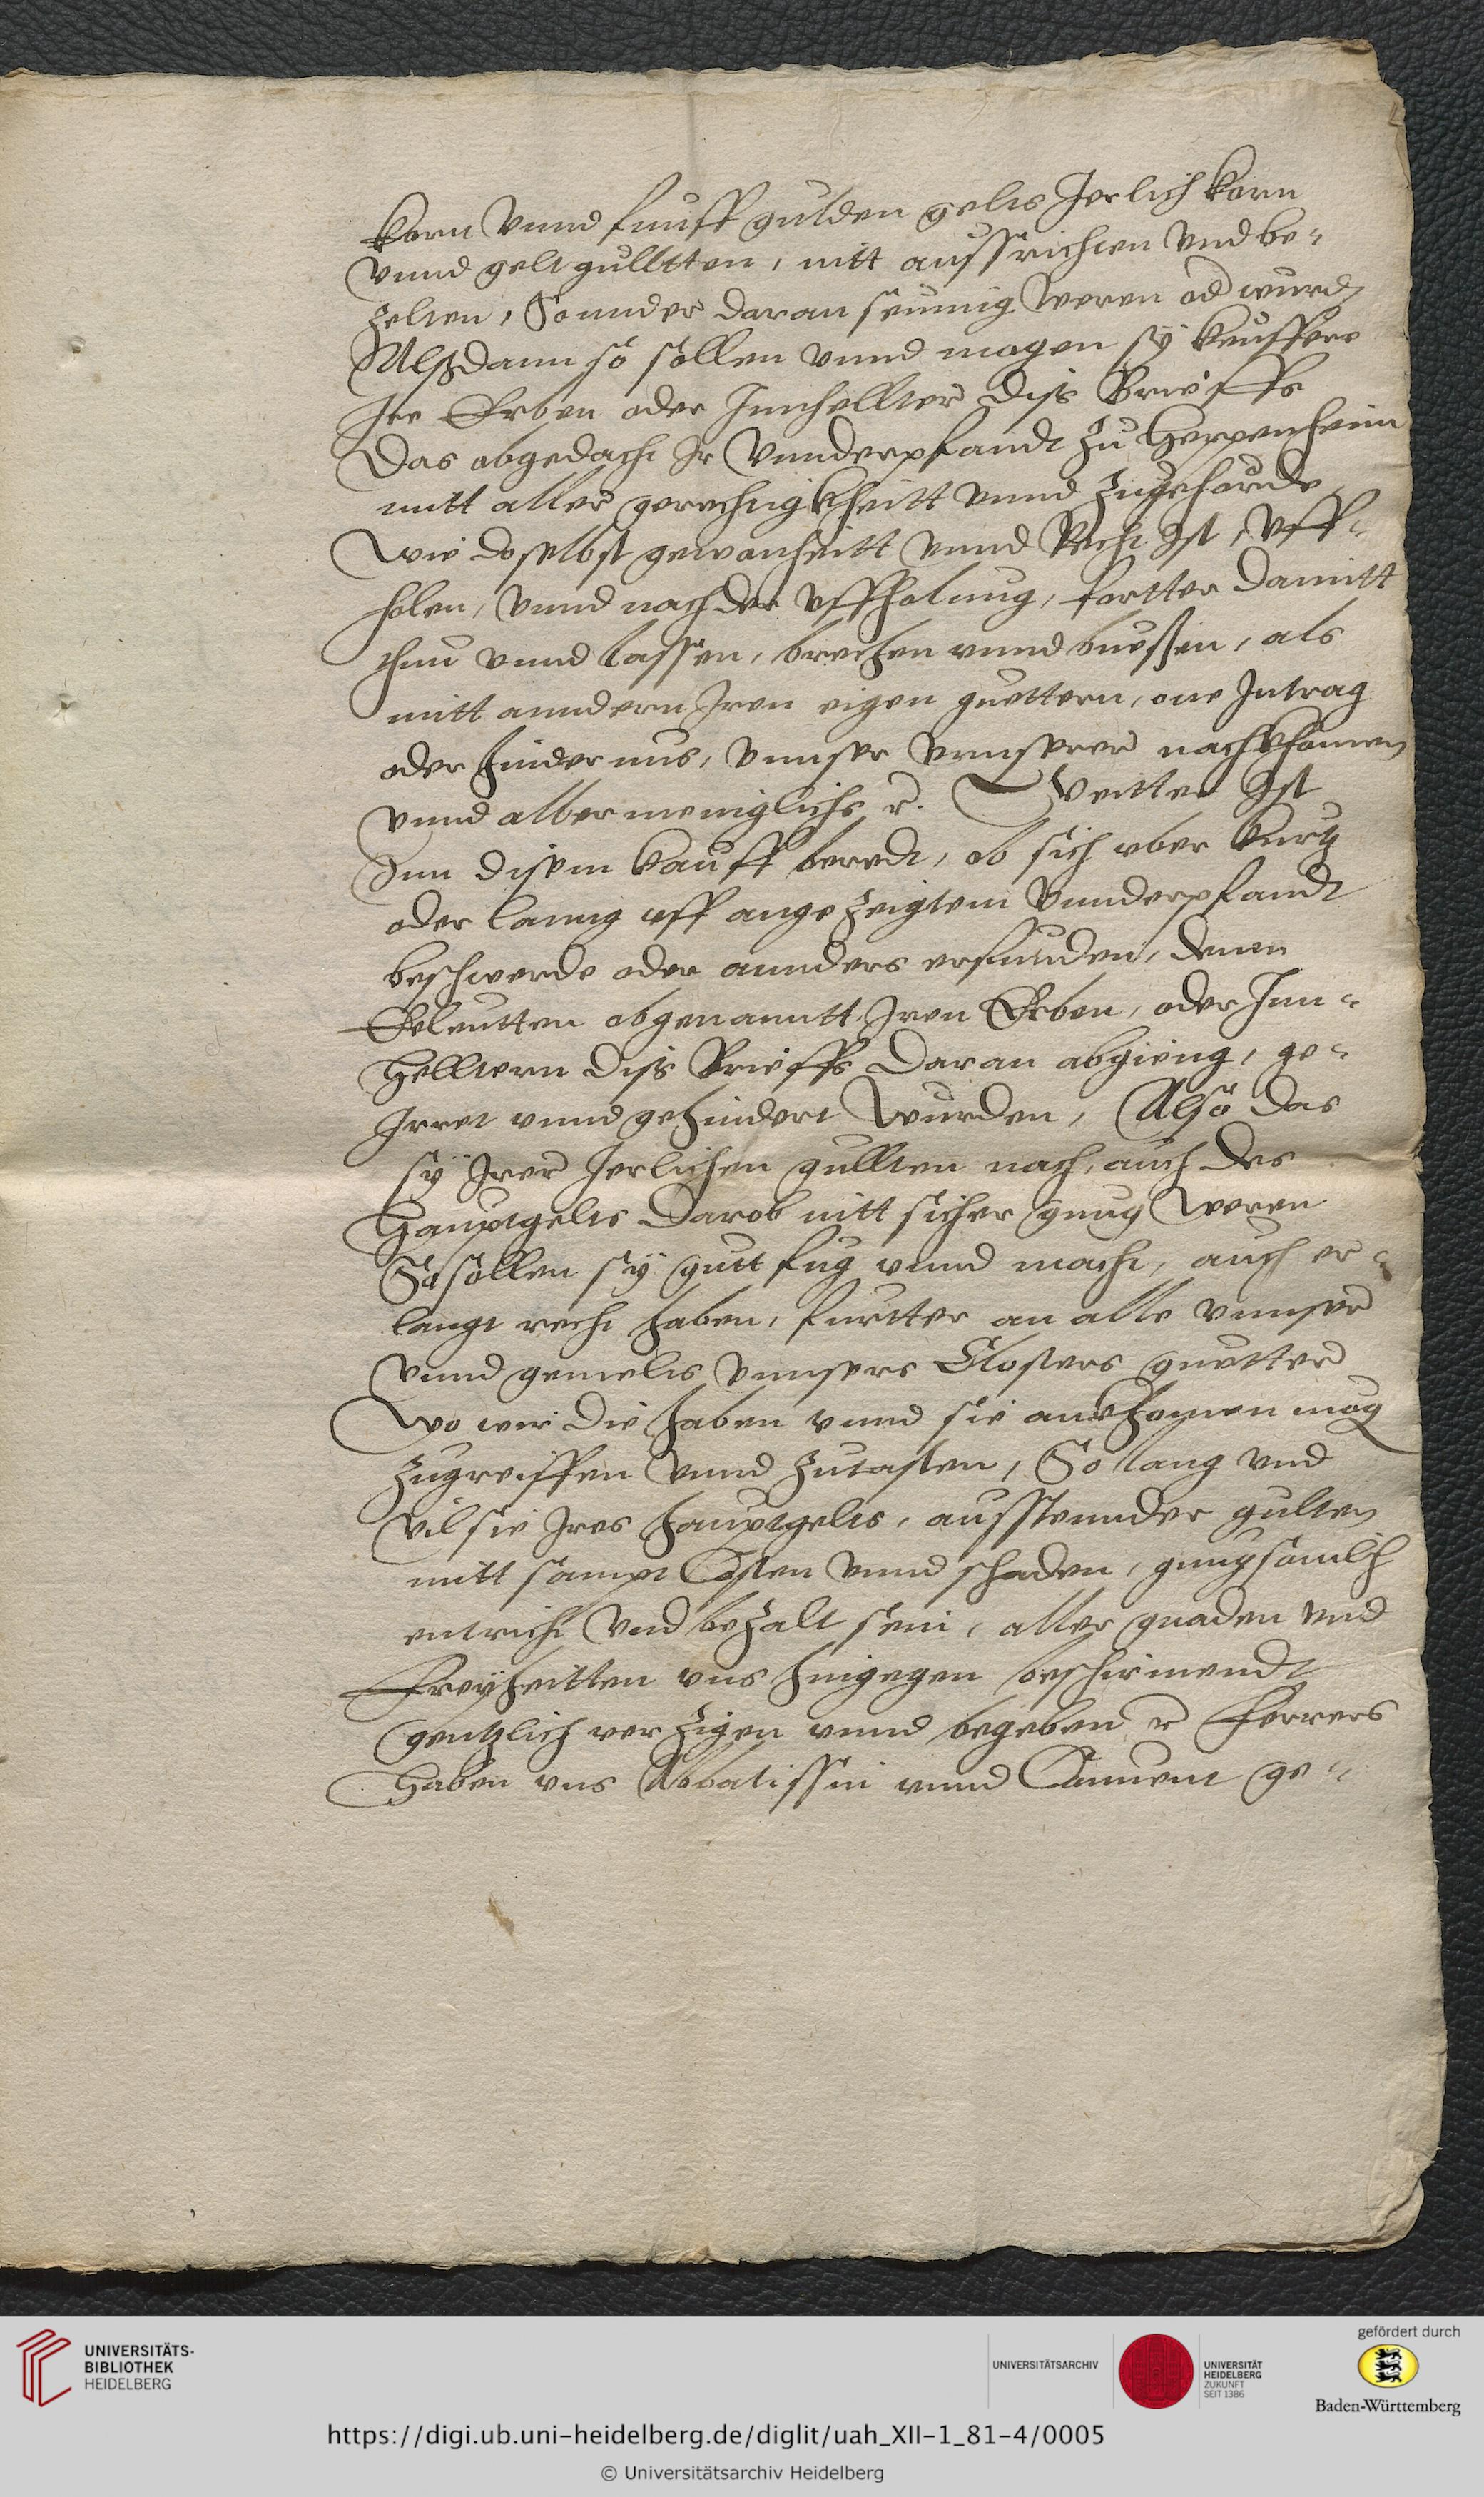 korn vnnd funff gulden gelts Jerlich korn
vnnd gelt gulltten, nitt aussrichten vnd be-
zelten, Sonnder daran seumig weren od wurd
Alßdann so sollen vnnd mogen sy keuffere
Jre Erben oder Jnnhellter diss Brieffs
das obgedacht Jr vnnderpfandt zu Heppenheim
mitt aller gerechtigkheitt vnnd zugehorde
wie doselbst gewonheitt vnnd Recht Ist, vff-
holen, vnnd nach der vffholung, fortter damitt
thun vnnd lassen, brechen vnnd bueßen, als
mitt anndern Jren eigen guettern, one Jntrag
oder hindernus, vnnser vnnserer nachkhomen
vnnd allermeniglichs ꝛc. Weitter Ist
Jnn disem kauff beredt, ob sich vber kurtz
oder lanng vff angezeigtem vnnderpfandt
beschwerde oder annders erfunden, denn
Eeleutten obgenanntt Jren Erben, oder Jnn-
helltern diss Brieffs daran abgieng, ge-
Jrret vnnd gehindert wurden, Also das
sy Jrer Jerlichen gullten nach, auch des
Hauptgelts darob nitt sicher gnug weren
So sollen sy gutt fug vnnd macht, auch er-
langt recht haben, furtter an alle vnnser
vnnd gemelts vnnsers Closters guetter
wo wir die haben vnnd sie ankhomen mog
zugreiffen vnnd zutasten, So lang vnd
vil sie Jres hauptgelts, ausstennder gulten
mitt sampt Costen vnnd schaden, gnugsamlich
entricht vnd bezalt sein, aller gnaden vnd
Freyheitten vns hingegen beschirmendt
gentzlich verzigen vnnd begeben ꝛc Ferrers
Haben vns Abbatissin vnnd Connent ge-
UNIVERSITÄTS-
BIBLIOTHEK
HEIDELBERG
UNIVERSITÄTSARCHIV
UNIVERSITÄT
HEIDELBERG
ZUKUNFT
SEIT 1386
gefördert durch
Baden-Württemberg
https://digi.ub.uni-heidelberg.de/diglit/uah_XII-1_81-4/0005
© Universitätsarchiv Heidelberg